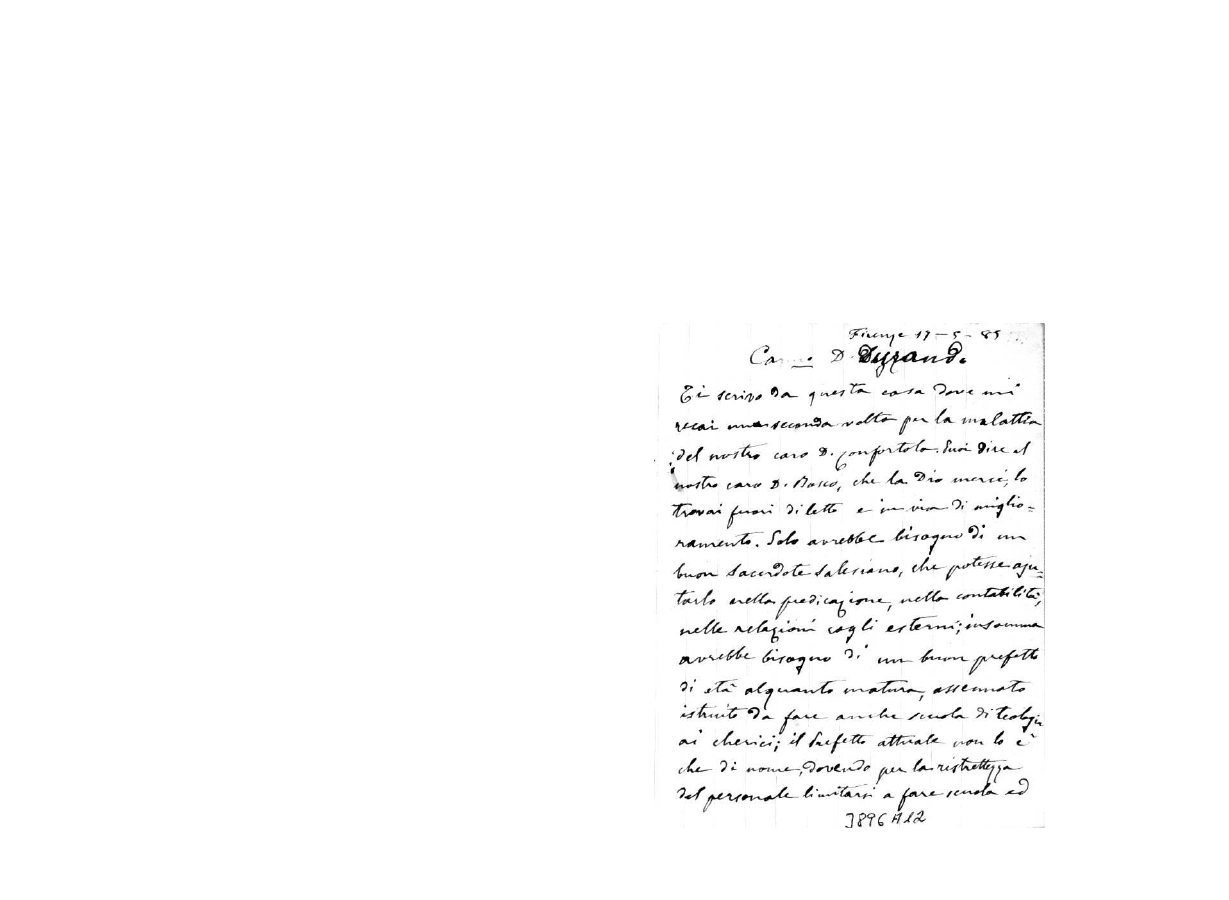 Firenze 17-5-85
Car.mo D. Durando
Ti scrivo da questa casa dove mi
recai una seconda volta per la malattia
del nostro caro D. Confortola. Puoi dire al
nostro caro D. Bosco, che la Dio mercè, lo
trovai fuori di letto e in via di miglio=
ramento. Solo avrebbe bisogno di un
buon Sacerdote Salesiano, che potesse aju=
tarlo nella predicazione, nella contabilità,
nelle relazioni cogli esterni; insomma
avrebbe bisogno di un buon prefetto
di età alquanto matura, assennato
istruito da fare anche scuola di teologia
ai cherici; il Prefetto attuale non lo è
che di nome, dovendo per la ristrettezza
del personale limitarsi a fare scuola ed
3896 A12